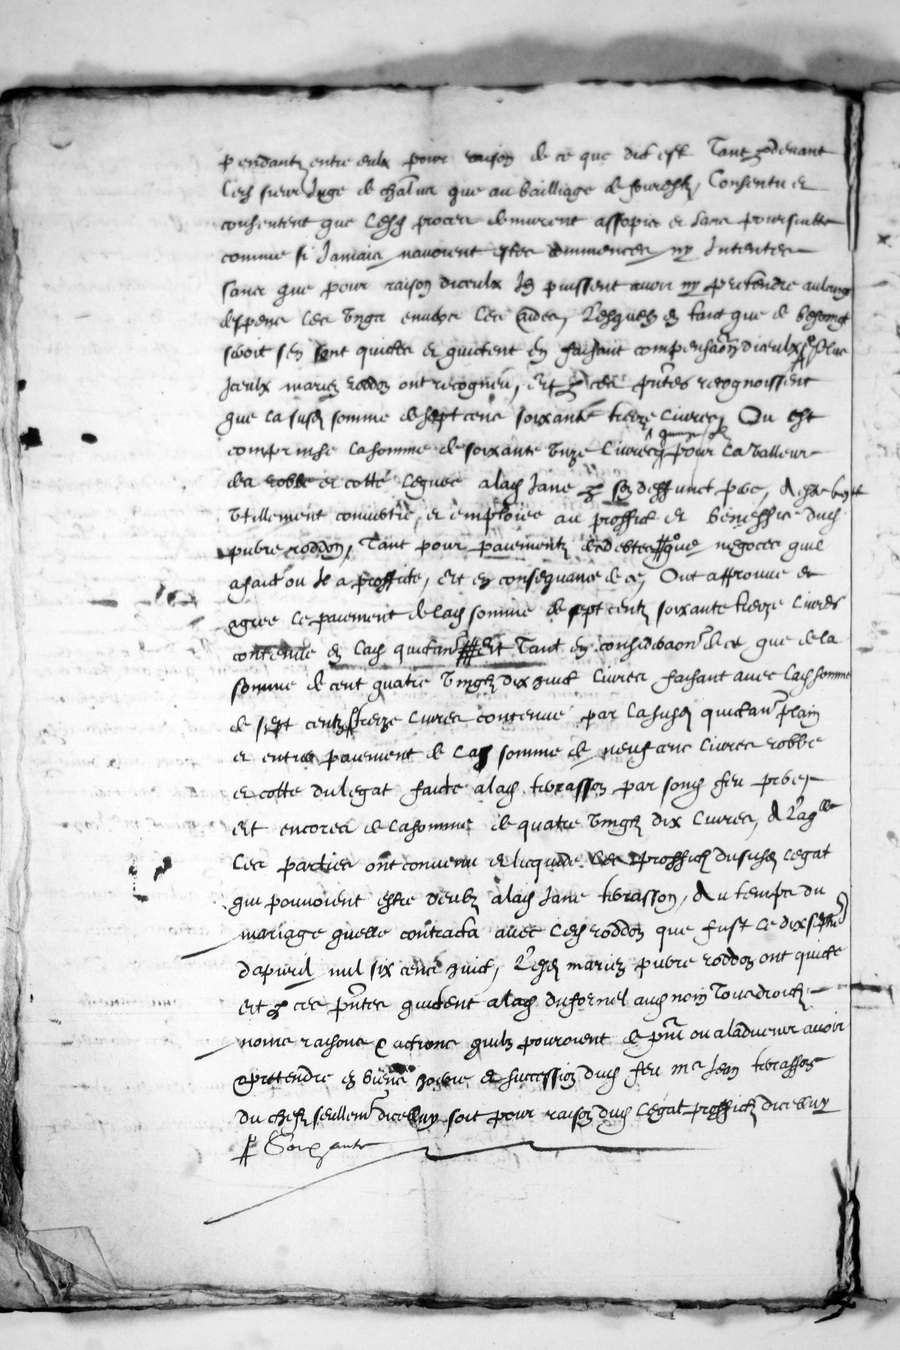 pendantz entre eulx pour raison de ce que dict est Tant pdevant
Led sieur Juge de chalma que au bailliage de fourestz, Consentu et
consentent que Lesd proces demurent assopis et sans poursuitte
comme si Jamais navoient estes commences ny Intentes
sans que pour raison diceulx Ilz puissent avoir ny pretendre aulcungs
despens Les Ungs envers Les aultres, Desquelz en tant que de besoingt
seroit sen sont quictes et quictent En faisant compensaon diceulx, Plus
Iceulx mariez roddon ont recogneu, Et p ces pntes recognoissent
que la susd somme de sept cens soixante treze Livres, Ou est
comprinse La somme de soixante Unze Livres pour La valleur
des robbe et cotte Leguee a lad Jane p son deffunct pere, A este
Utillement convertie, et emploiee au proffict et beneffice dud
pierre roddon, Tant pour paiementz de debtes que negoces quil
a faict ou Il a proffité, Et en consequance de ce, Ont approuve et
agree Le paiement de lad somme de sept centz soixante treze Livres
contenue en Lad quictance Et Tant en consideraon de ce que de la
somme de cent quatre Vingtz dix huict Livres faisant avec Lad somme
de sept centz treze Livres contenue par La susd quictance plain
et entier paiement de Lad somme de neuf cens Livres robbe
et cotte du legat faicte a lad terrasson par sond feu pere
Et encores de La somme de quatre Vingtz dix Livres, A Laqlle
Les parties ont convenu et licquidé Les proffictz du susd Legat
qui pouvoient estre deubz a lad Jane terrasson, Au temps du
mariage quelle contracta avec Led roddon que fust Le dixseptme
dapvril mil six cens huict, Lesd mariez pierre roddon ont quicté
Et p ces pntes quictent a lad dufornel aud nom Tous droictz
noms raisons & actions quilz pourroient de pnt ou a ladvenir avoir
& pretendre en biens hoirie et succession dud feu me Jean terrasson
du cheftz seullemt dicelluy soit pour raison dud Legat proffictz dicelluy